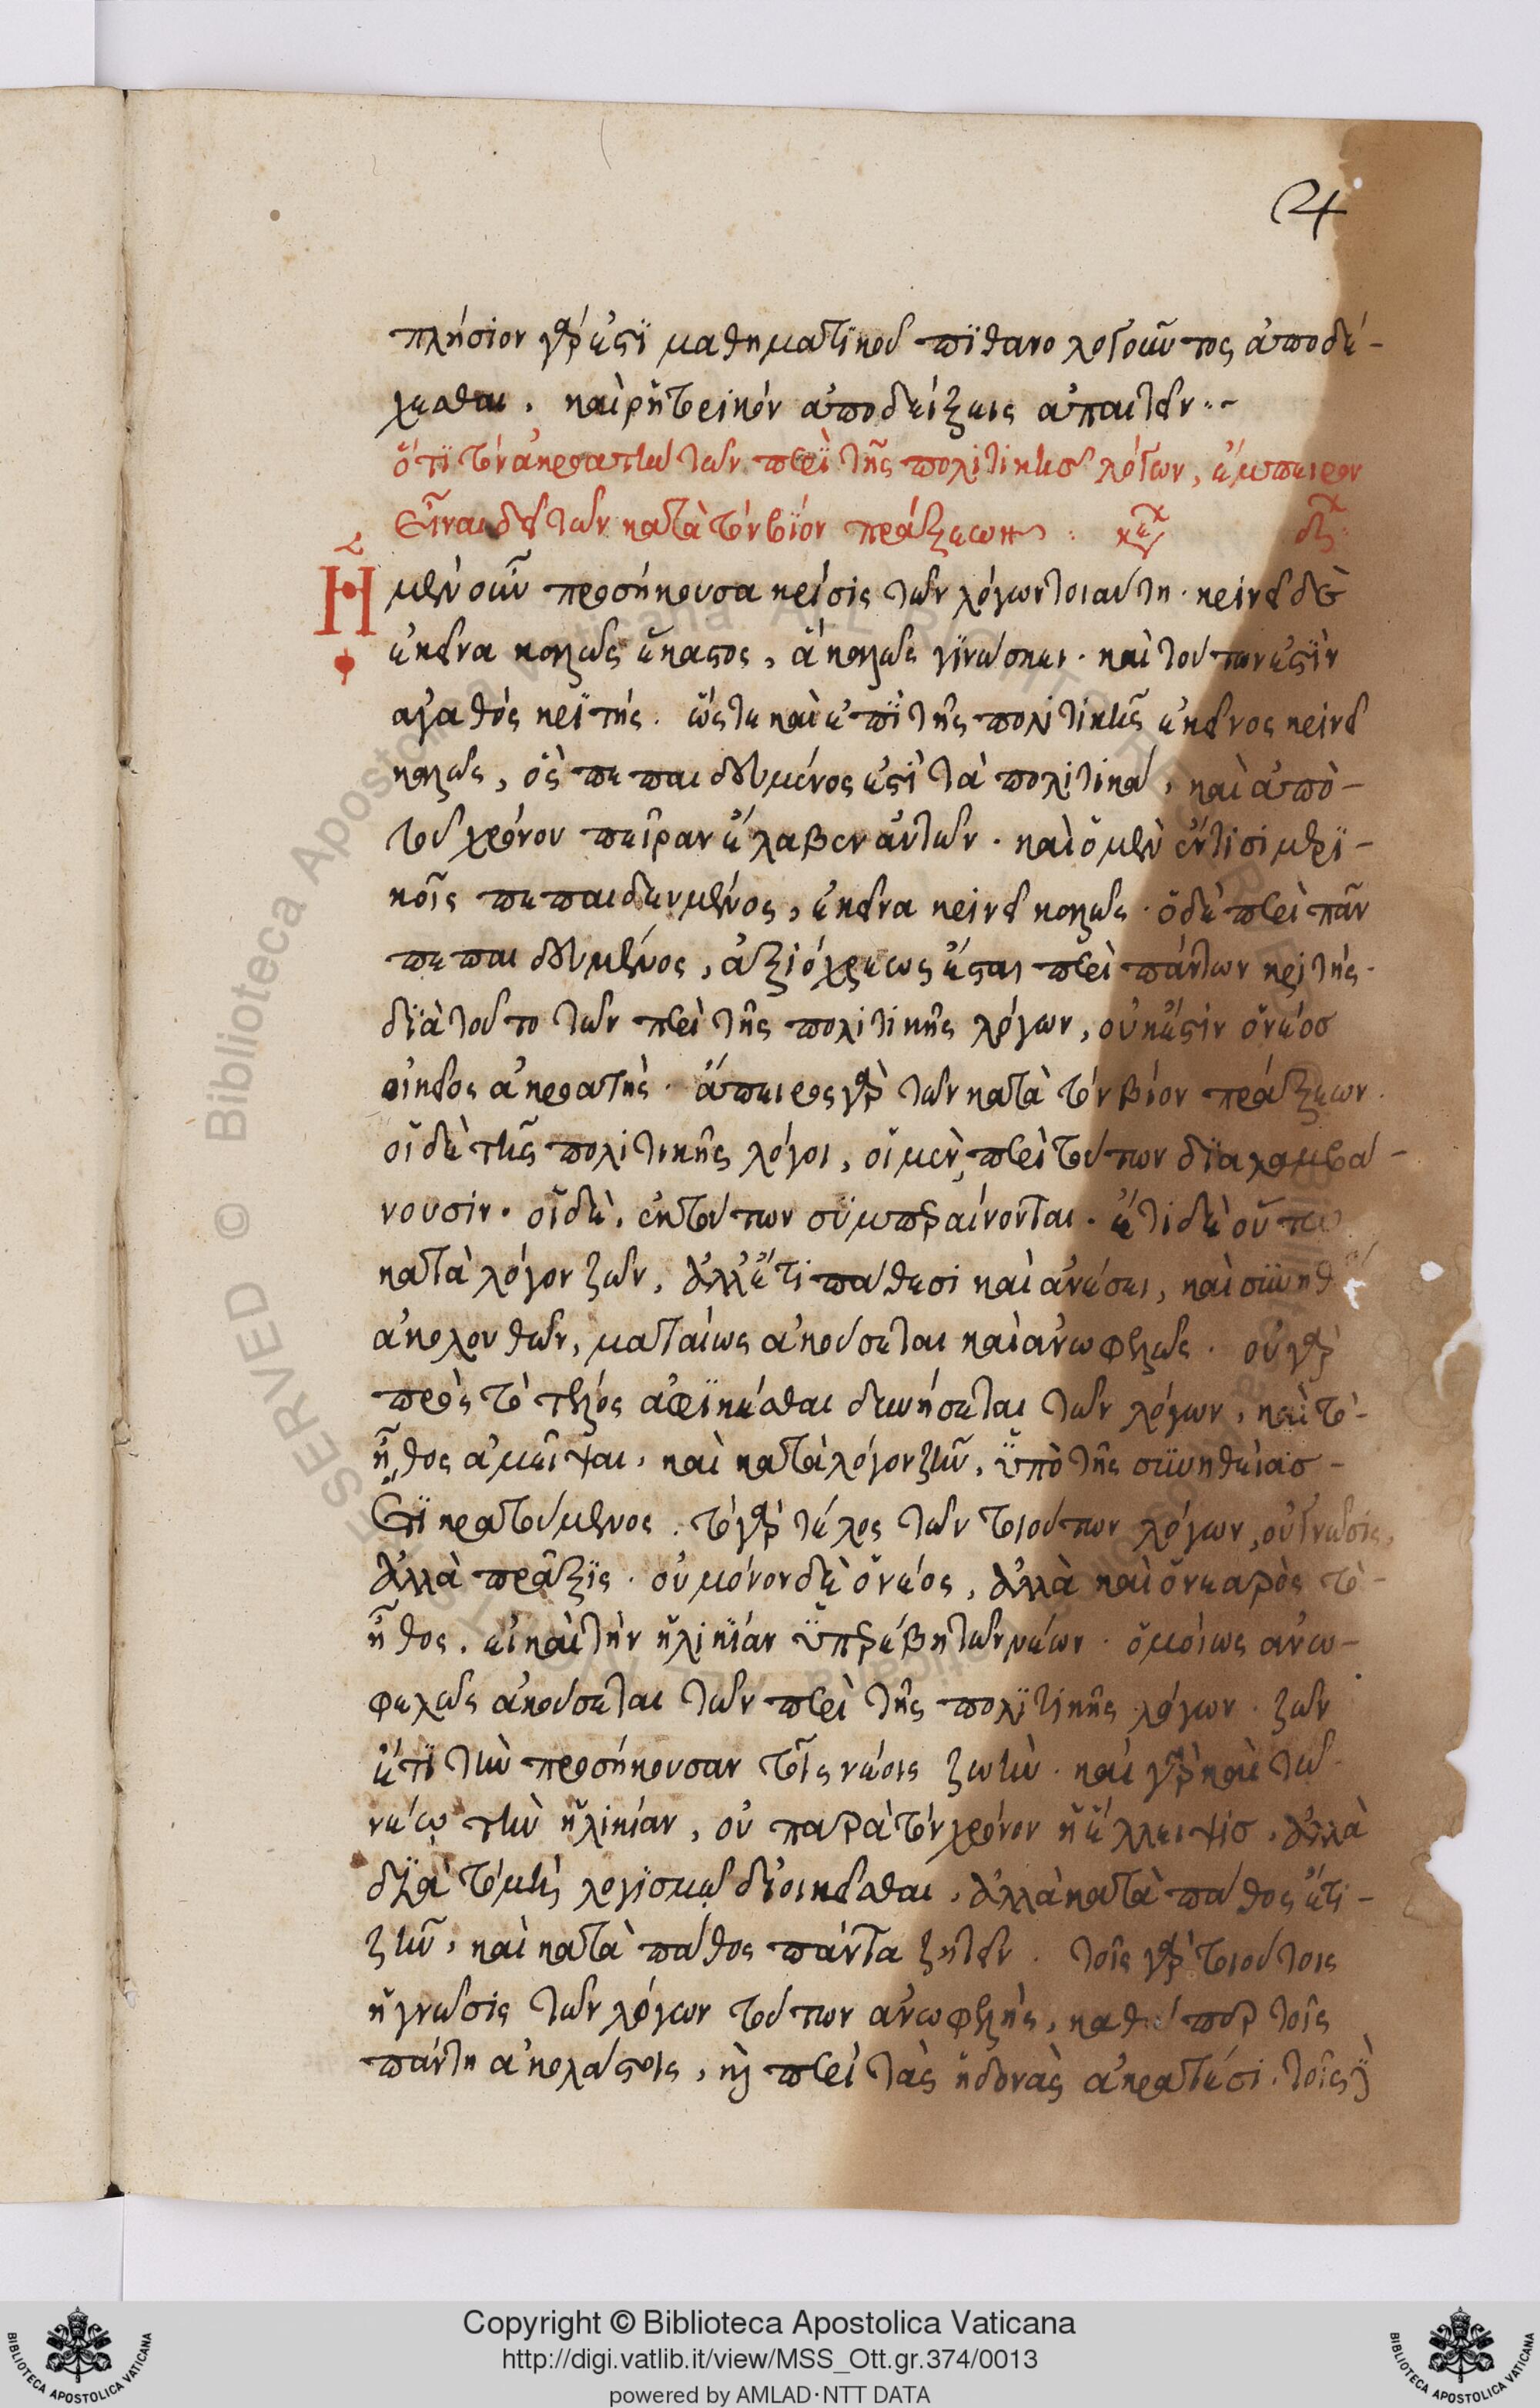 4
πλήσιον γάρ ἐςϊ μαθηματϊκοῦ πϊθανολογοῦντος ἀποδέ-
χεσθαι, καὶ ρητορικόν ἀποδείξεις ἀπαιτεῖν··~
ὅτϊ τόν ἀκροατὴν τῶν περὶ τῆς πολιτικῆσ λόγων, ἔμπειρον
εἶναι δεῖ τῶν κατὰ τόν βϊόν πράξεων:
Ἡ μὲν οὖν προσήκουσα κρίσις τῶν λόγων τοιαύτη· κρίνει δὲ
ἐκεῖνα καλῶς ἕκαστος, ἃ καλῶς γϊνώσκει· καὶ τούτων ἐςϊν
αγαθός κρϊτής· ὥστε καὶ ἐπὶ τῆς πολιτικῆς ἐκεῖνος κρίνει
καλῶς, ὃς πεπαιδευμένος ἐςὶ τὰ πολιτικά, καὶ ἀπὸ-
τοῦ χρόνου πεῖραν ἔλαβεν ἀυτῶν· καὶ ὁ μὲν ἔν τισι μερϊ-
κοῖς πεπαιδευμένος, ἐκεῖνα κρίνει καλῶς· ὁ δὲ περὶ πᾶν
πεπαιδευμένος, ἀξιόχρεως ἔσται περὶ πάντων κριτής·
δϊὰ τοῦτο τῶν περὶ τῆς πολιτικῆς λόγων, οὐκ ἔςιν ὁ νέοσ
οἰκεῖος ἀκροατής· ἄπειρος γὰρ τῶν κατὰ τόν βίον πράξεων·
οἱ δὲ τῆς πολιτικῆς λόγοι, οἱ μὲν, περὶ τούτων δϊαλαμβά-
νουσιν· οἱ δὲ, ἐκ τούτων συμπεραίνονται· ἔτι δὲ οὔπω
κατὰ λόγον ζῶν, ἀλλ' ἔτι πάθεσι καὶ ἀνέσει, καὶ συνηθ
ἀκολουθῶν, ματαίως ἀκούσεται καὶ ἀνωφελῶς· οὐ γὰρ
πρὸς τὸ τέλος ἀφϊκέσθαι δυνήσεται τῶν λόγων, καὶ τὸ-
ἦθος ἀμεῖψαι, καὶ κατὰ λόγον ζῆν, ὑπὸ τῆς συνηθείασ-
ἔτϊ κρατούμενος· τὸ γὰρ τέλος τῶν τοιούτων λόγων, οὐ γνῶσις,
ἀλλὰ πρᾶξϊς· οὐ μόνον δὲ ὁ νέος, ἀλλὰ καὶ ὁ νεαρὸς τὸ-
ἦθος, εἰ καὶ τὴν ἡλικϊάν ὑπερέβη τῶν νέων· ὁμοίως ἀνω-
φελῶς ἀκούσεται τῶν περὶ τῆς πολϊτικῆς λόγων· ζῶν
ἔτϊ τὴν προσήκουσαν τοῖς νέοις ζωὴν· καὶ γὰρ καὶ τῶ
νέῳ τὴν ἡλικίαν, οὐ παρὰ τόν χρόνον ἡ ἔλλειψισ, ἀλλὰ
δϊὰ τό μὴ λογϊσμῷ διοικεῖσθαι, ἀλλὰ κατὰ πάθος ἔτι-
ζῆν, καὶ κατὰ πάθος πάντα ζητεῖν· τοῖς γὰρ τοιούτοις
ἡ γνῶσις τῶν λόγων τούτων ἀνωφελής, καθάπερ τοῖς
πάντη ἀκολάστοις, κὶ περὶ τὰς ἡδονὰς ἀκρατέσι· τοῖς γὰρ
Copyright © Biblioteca Apostolica Vaticana
http://digi.vatlib.it/view/MSS_Ott.gr.374/0013
powered by AMLAD·NTT DATA